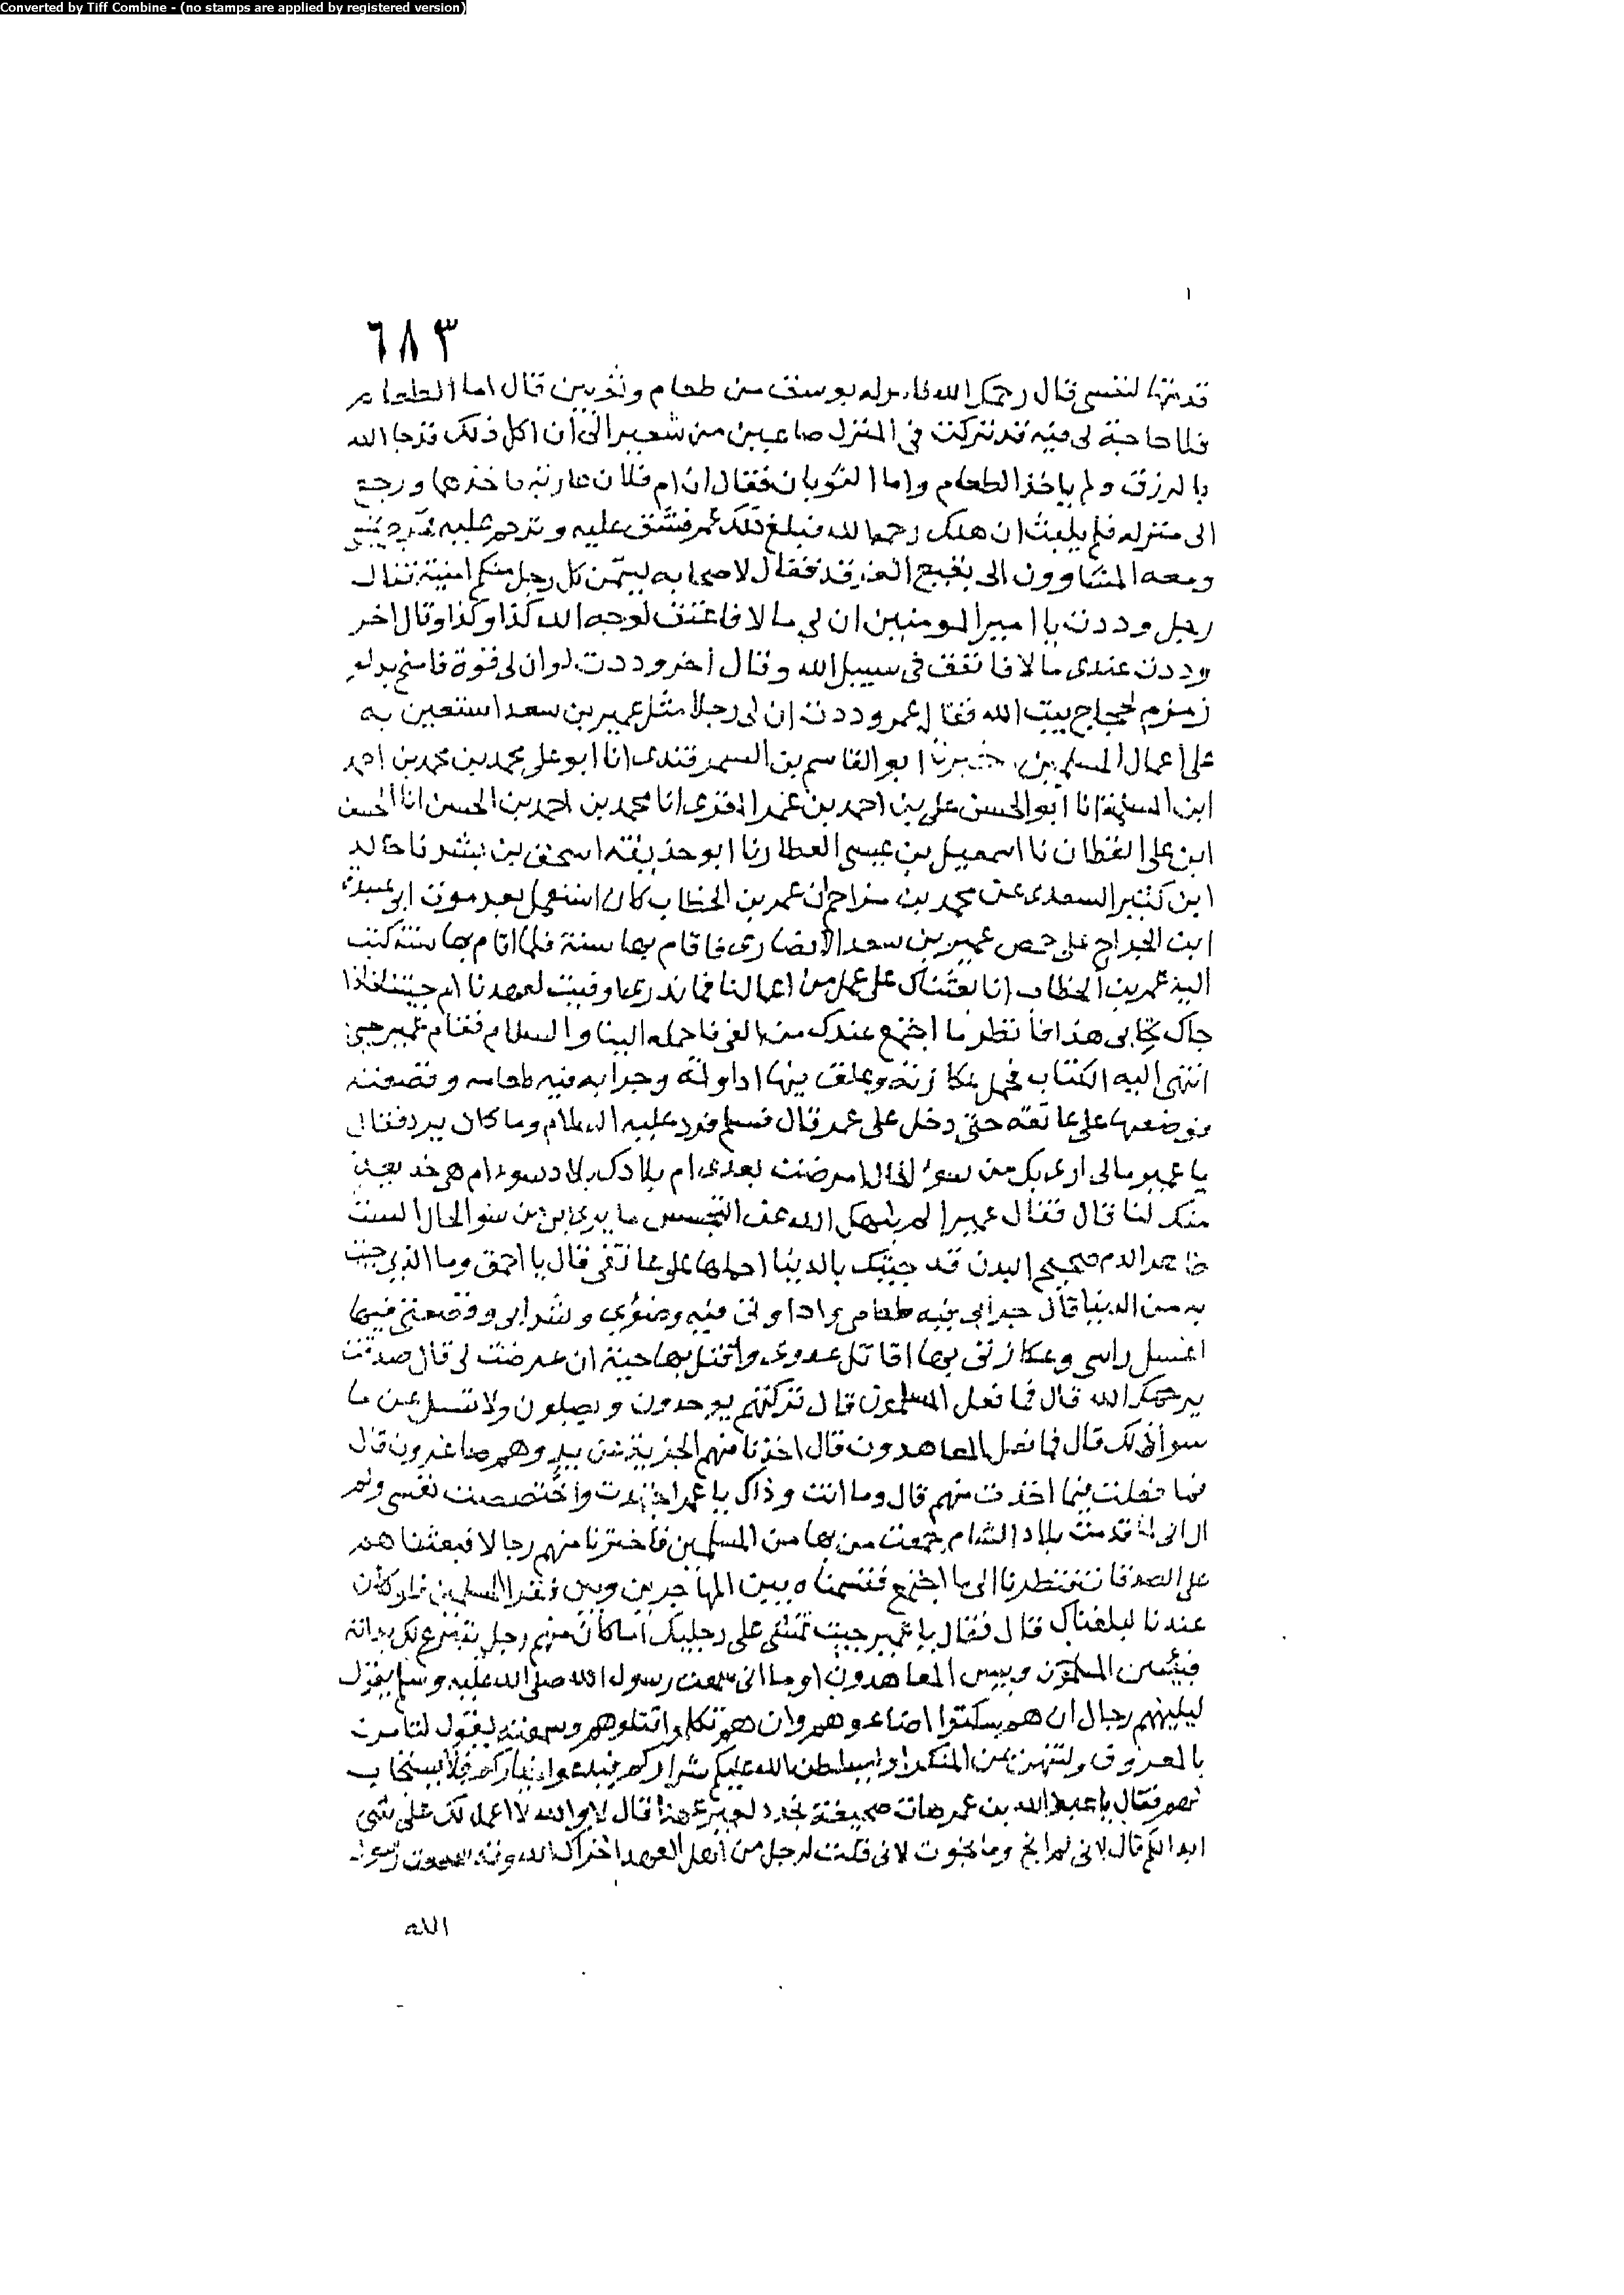 Converted by Tiff Combine - (no stamps are applied by registered version)
١
٦٨٣
قدمتها لنفسي قال رحمك الله فامر له بوسق من طعام وثوبين قال اما الطعام
فلا حاجة لي فيه قد تركت في المنزل صاعين من شعير الى ان اكل ذلك قد جا الله
بالرزق ولم ياخذ الطعام واما الثوبان فقال ان ام فلان عارية فاخذها ورجع
الى منزله فلم يلبث ان هلك رحمه الله فبلغ ذلك عمر فشق عليه وترحم عليه
ومعه المشاوون الى بقيع الغرقد فقال لاصحابه ليتمن كل رجل منكم امنية فقال
رجل وددت يا امير المومنين ان لي مالا فاعتق لوجه الله كذا وكذا وقال اخر
وددت عندي مالا فانفق في سبيل الله وقال اخر وددت لو ان لي قوة فامتح بدلو
زمزم لحجاج بيت الله فقال عمر وددت ان لي رجلا مثل عمير بن سعد استعين به
على اعمال المسلمين اخبرنا ابو القاسم بن السمرقندي انا ابو علي محمد بن محمد بن احمد
ابن المسلمة انا ابو الحسن علي بن احمد بن عمر المقري انا محمد بن احمد بن الحسن انا الحسن
ابن علي القطان نا اسمعيل بن عيسى العطار نا ابو حذيفة اسحق بن بشر نا خالد
ابن كثير السعدي عن محمد بن مزاحم ان عمر بن الخطاب كان استعمل بعد موت ابو عبيدة
ابن الجراح على حمص عمير بن سعد الانصاري فاقام بها سنة فلما اقام بها سنة كتب
اليه عمر بن الخطاب انا بعثناك على عمل من اعمالنا فما ندري اوفيت لعهدنا ام خنتنا فاذا
جاك كتابي هذا فانظر ما اجتمع عندك من الفي فاحمله الينا والسلام فقام عمير حين
انتهى اليه الكتاب فحمل عكازته وعلق بها اداوته وجرابه فيه طعامه وقصعته
فوضعها على عاتقه حتى دخل على عمر قال فسلم فرد عليه السلام وما كان يرد فقال
يا عمير مالي ارى بك من سوء الحال امرضت بعدي ام بلادك بلاد سوء ام هي خديعة
منك لنا قال فقال عمير الم ينهك الله عن التجسس ما يرى بي من سو الحال الست
طاهر الدم صحيح البدن قد جيتك بالدنيا احملها على عاتقي قال يا احمق وما الذي جيت
به من الدنيا قال جرابي فيه طعامي واداوتي فيه وضوي وشرابي وقصعتي فيها
اغسل راسي وعكازتي بها اقاتل عدوي واقتل بها حية ان عرضت لي قال صدقت
يرحمك الله قال فما فعل المسلمون قال تركتهم يوحدون ويصلون ولا تسل عن ما
سوا ذلك قال فما فعل المعاهدون قال اخذنا منهم الجزية عن يد وهم صاغرون قال
فما فعلت فيما اخذت منهم قال وما انت وذاك يا عمر اجتهدت واختصصت نفسي ولم
ال اني لما قدمت بلاد الشام جمعت من بها من المسلمين فاخترنا منهم رجالا فبعثناهم
على الصدقات فنظرنا الى ما اجتمع فقسمناه بين المهاجرين وبين فقرا المسلمين فلو كان
عندنا لبلغناك قال فقال يا عمير جيت تمشي على رجليك اما كان فيهم رجل يتبرع لك بدابة
فبئس المسلمون وبيس المعاهدون اوما اني سمعت رسول الله صلى الله عليه وسلم يقول
ليلينهم رجال ان هم سكتوا اضاعوهم وان هم تكلموا قتلوهم وسمعته يقول لتامرن
بالمعروف ولتنهون عن المنكر او ليسلطن الله عليكم شراركم فيدعوا خياركم فلا يستجاب
لهم فقال يا عبد الله بن عمر هات صحيفة نجدد لعمير عهدا قال لا والله لا اعمل لك على شي
ابدا لم قال لاني لم انج وما نجوت لاني قلت لرجل من اهل العهد اخزاك الله وقد سمعت رسول
الله